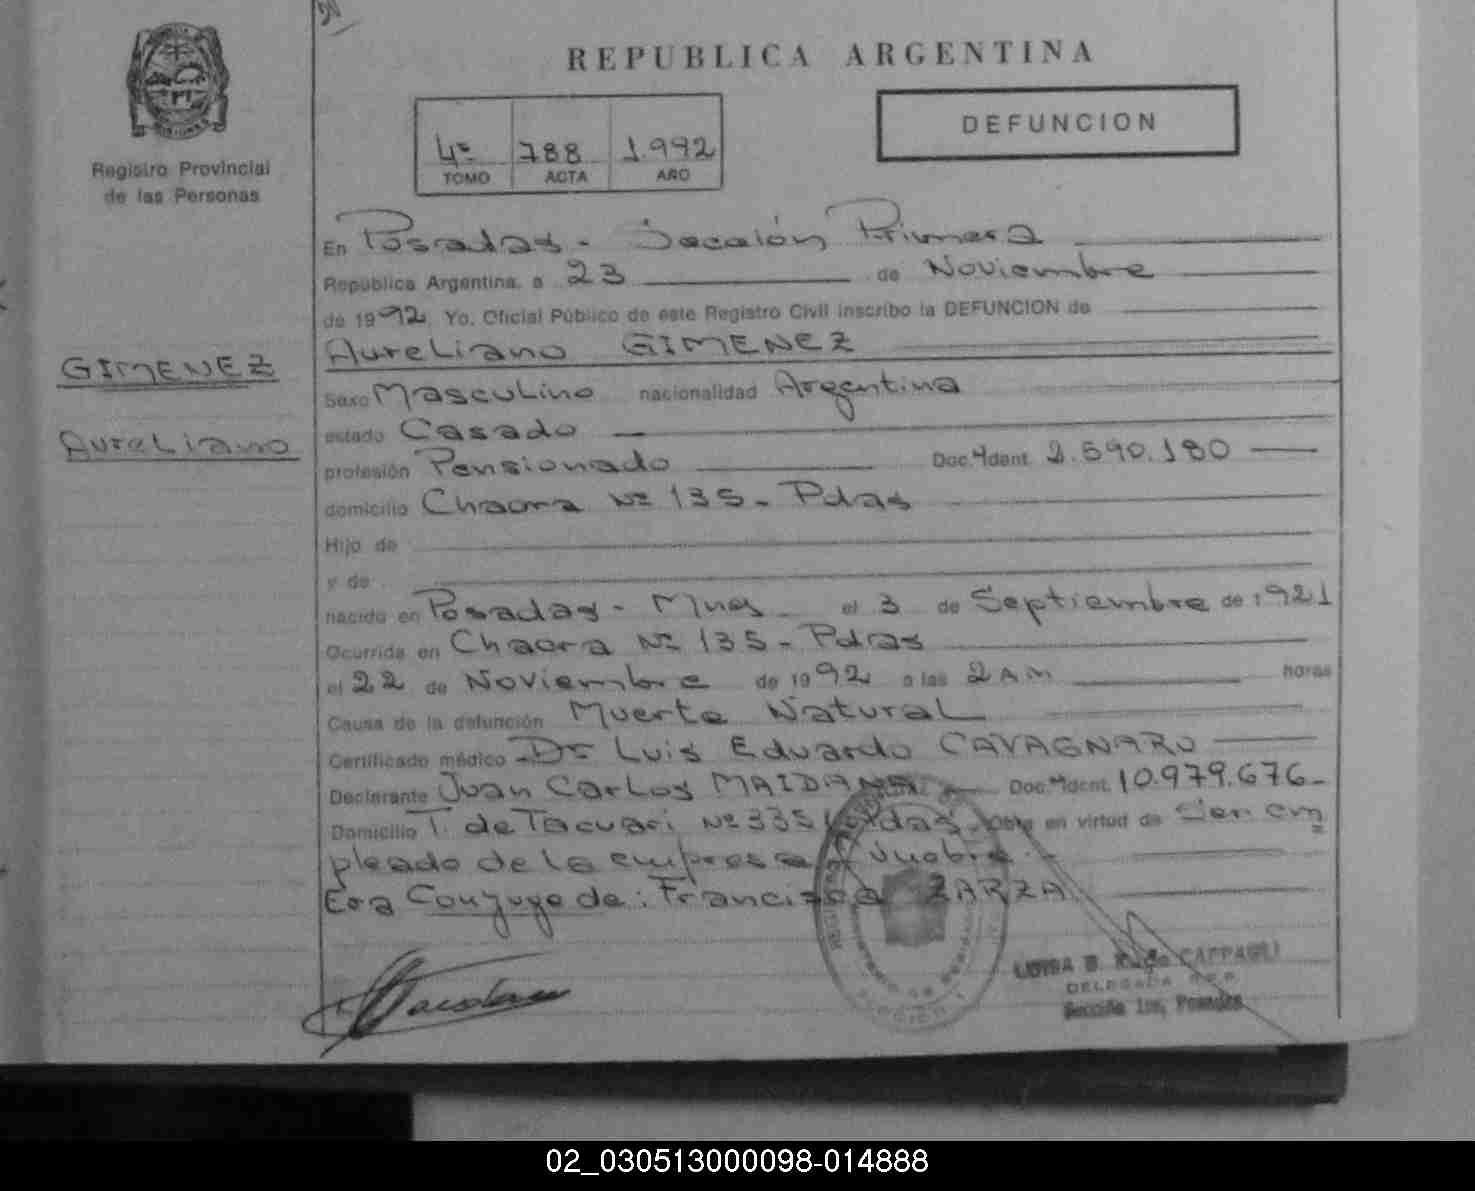 REPUBLICA ARGENTINA
DEFUNCION
4º 788 1.992
TOMO ACTA AÑO
Registro Provincial
de las Personas
GIMENEZ
Aureliano
En Posadas - Sección Primera
República Argentina, a 23 de Noviembre
de 1992, Yo, Oficial Público de este Registro Civil inscribo la DEFUNCION de
Aureliano GIMENEZ
Sexo Masculino nacionalidad Argentina
estado Casado
profesión Pensionado Doc. Ident. 2.590.180
domicilio Chacra Nº 135 - Pdas
Hijo de
y de
nacido en Posadas - Mnes el 3 de Septiembre de 1921
Ocurrida en Chacra Nº 135 - Pdas
el 22 de Noviembre de 1992 a las 2 AM horas
Causa de la defunción Muerte Natural
Certificado médico Dr Luis Eduardo CAVAGNARO
Declarante Juan Carlos MAIDANA Doc. Ident. 10.979.676-
Domicilio T. de Tacuari Nº 335 Pdas. Obra en virtud de Ser em
pleado de la empresa
Era Conyuge de: Francisca ZARZA
LUISA B. de CAPPAGLI
DELEGADA
Sección 1ra, Posadas
02_030513000098-014888